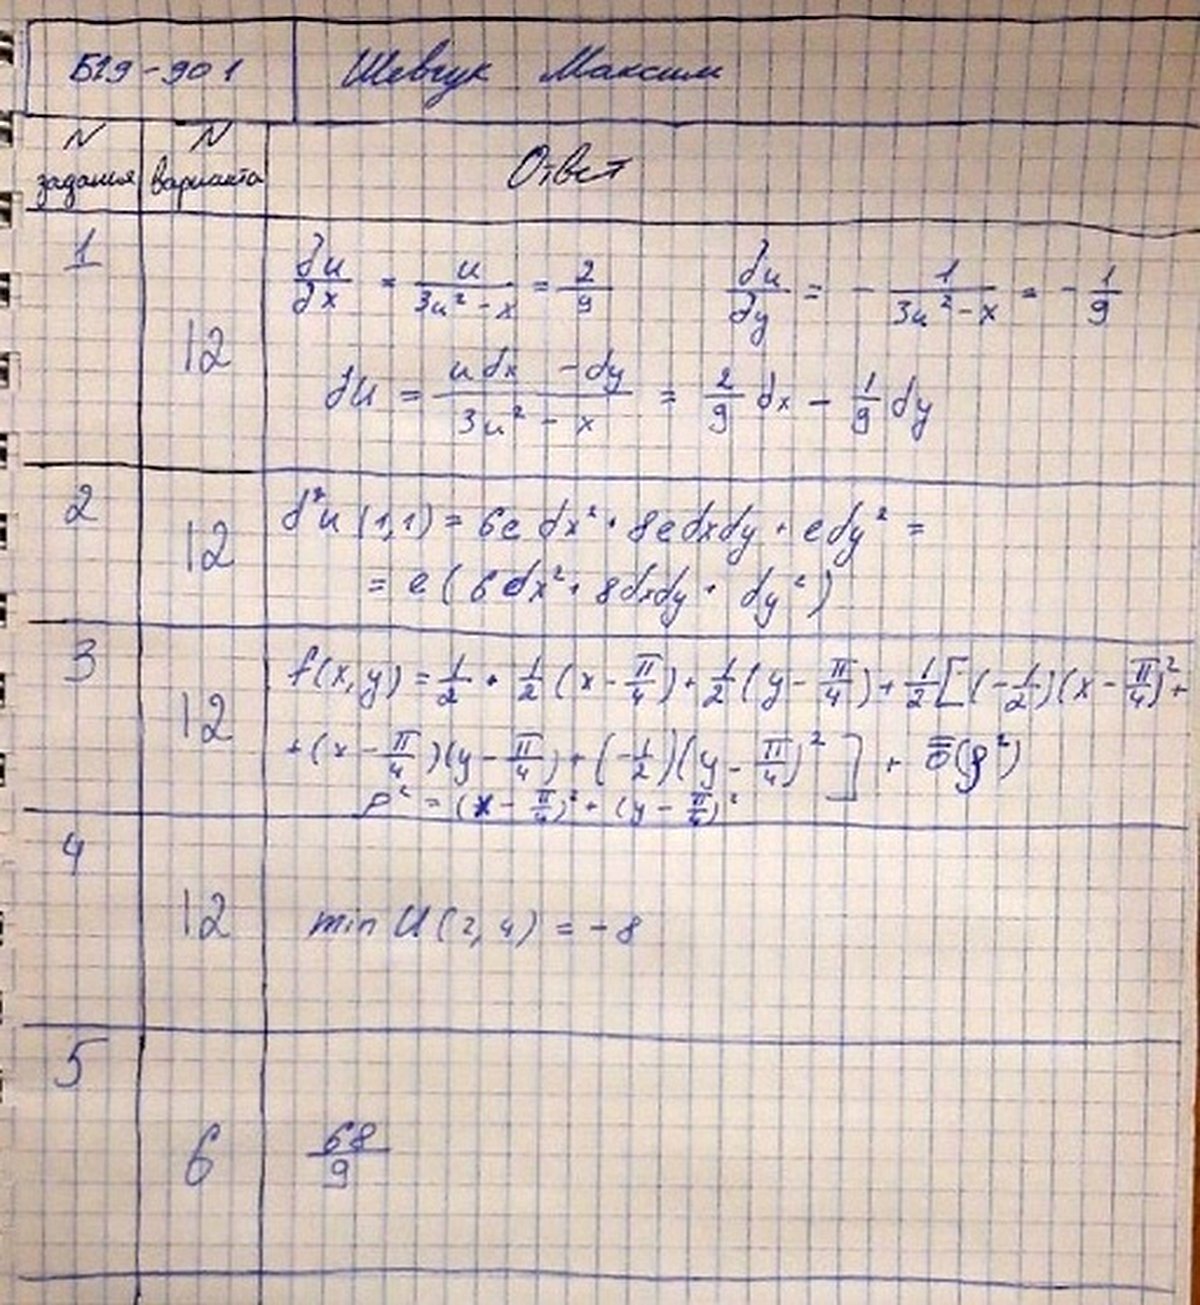 Б19-901 Шевчук Максим
N задания N варианта Ответ
1 12 ∂u/∂x = u/(3u²-x) = 2/9 ∂u/∂y = - 1/(3u²-x) = - 1/9
du = (u dx - dy)/(3u² - x) = 2/9 dx - 1/9 dy
2 12 d²u (1,1) = 6e dx² + 8e dxdy + e dy² =
= e (6 dx² + 8dxdy + dy²)
3 12 f(x,y) = 1/2 + 1/2 (x - π/4) + 1/2 (y - π/4) + 1/2 [(-1/2)(x - π/4)² +
+ (x - π/4)(y - π/4) + (-1/2)(y - π/4)²] + ō(ρ²)
ρ² = (x - π/4)² + (y - π/4)²
4 12 min U(2,4) = -8
5 6 68/9